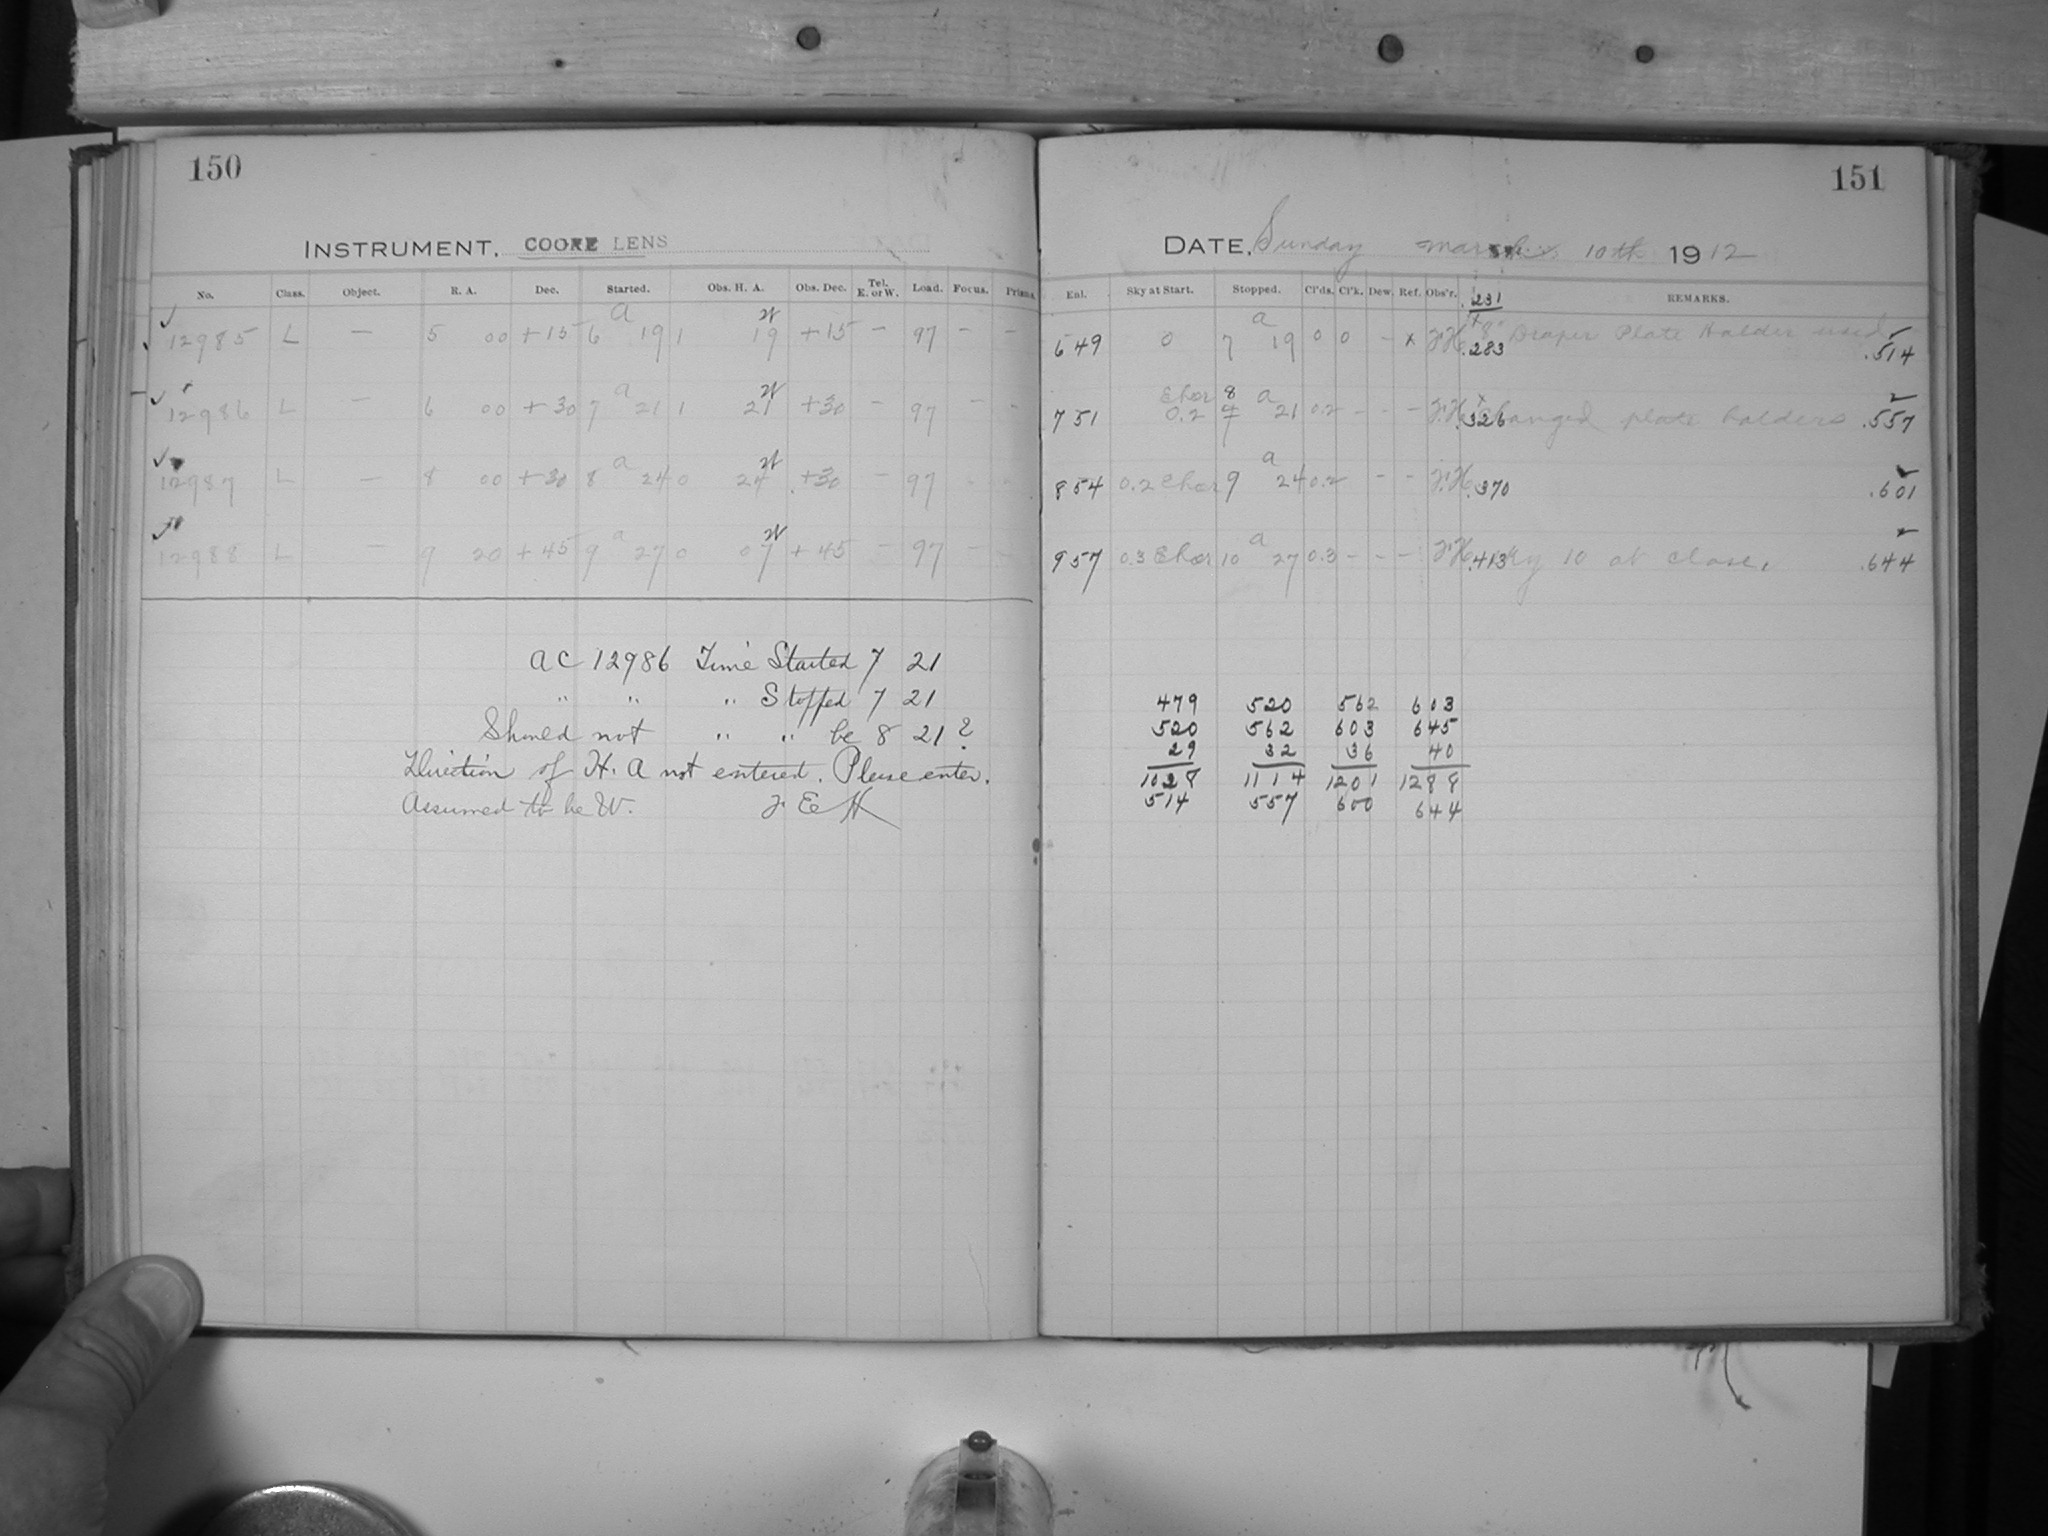 150
INSTRUMENT, COOKE LENS
No. Class. Object. R. A. Dec. Started. Obs. H. A. Obs. Dec. Tel. E. or W. Load. Focus. Prisms
12985 L — 5 00 +15 6 a 19 1 W 19 +15 — 97 — —
12986 L — 6 00 +30 7 a 21 1 W 21 +30 — 97 — —
12987 L — 8 00 +30 8 a 24 0 W 24 +30 — 97 — —
12988 L — 9 20 +45 9 a 27 0 W 07 +45 — 97 — —
AC 12986 Time Started 7 21
" " " Stopped 7 21
Should not " " be 8 21?
Direction of H. A not entered. Please enter.
Assumed to be W. J E H
151
DATE, Sunday March 10th 1912
Enl. Sky at Start. Stopped. Cl'ds. Cl'k. Dew. Ref. Obs'r. .231 REMARKS.
649 0 7 a 19 0 0 — x .283 8" Draper Plate Holder used .514
751 0.2 8 7 a 21 0.2 — — — .326 Changed plate holders .557
854 0.2 9 a 24 0.2 — — .370 .601
957 0.3 10 a 27 0.3 — — — .413 10 at close. .644
479 520 562 603
520 562 603 645
29 32 36 40
1028 1114 1201 1288
514 557 600 644